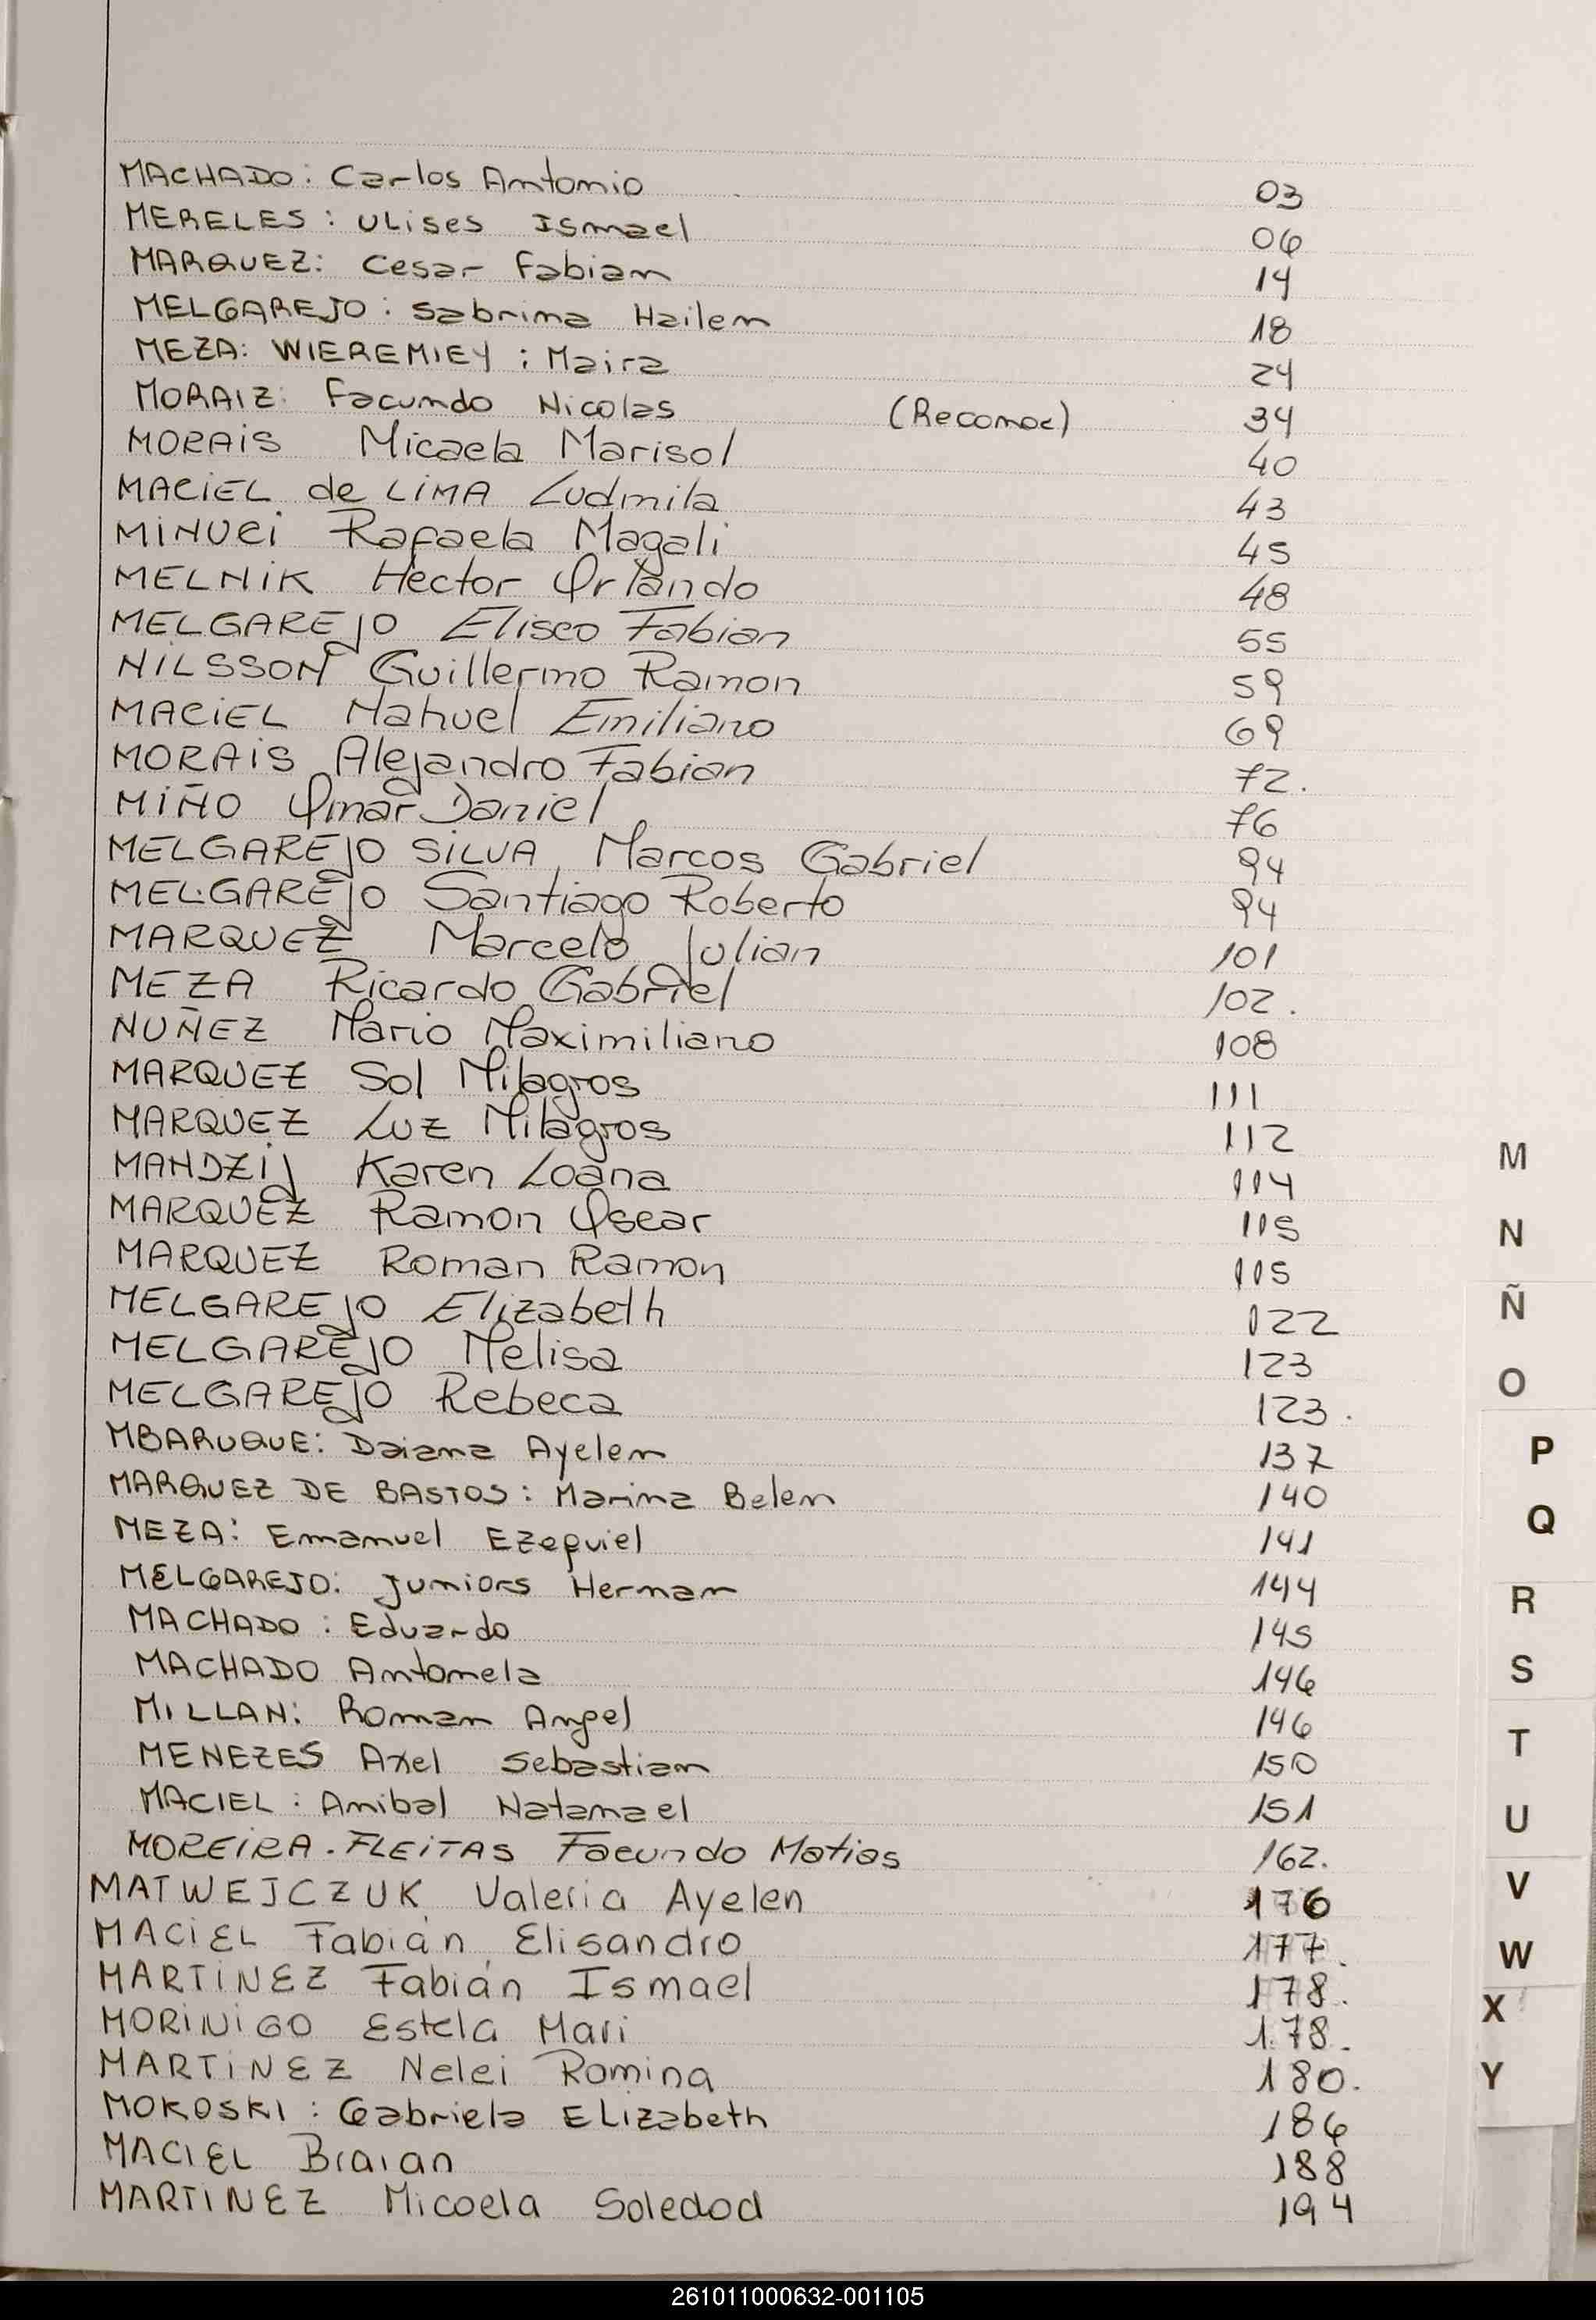 MACHADO: Carlos Antonio 03
MERELES: Ulises Ismael 06
MARQUEZ: Cesar Fabian 14
MELGAREJO: Sabrina Hailen 18
MEZA: WIEREMIEY: Maira 24
MORAIZ: Facundo Nicolas (Reconoc) 34
MORAiS Micaela Marisol 40
MACiEL de LiMA Ludmila 43
MiNUCi Rafaela Magali 45
MELNiK Hector Orlando 48
MELGAREjO Eliseo Fabian 55
NiLSSON Guillermo Ramon 59
MACiEL Nahuel Emiliano 69
MORAiS Alejandro Fabian 72.
MiÑO Omar Daniel 76
MELGAREjO SiLVA Marcos Gabriel 94
MELGAREjO Santiago Roberto 94
MARQUEZ Marcelo Julian 101
MEZA Ricardo Gabriel 102.
NUÑEZ Mario Maximiliano 108
MARQUEZ Sol Milagros 111
MARQUEZ Luz Milagros 112
MANDZij Karen Loana 114
MARQUEZ Ramon Oscar 115
MARQUEZ Roman Ramon 115
MELGAREjO Elizabeth 122
MELGAREjO Melisa 123
MELGAREjO Rebeca 123.
MBARUQUE: Daiana Ayelen 137
MARQUEZ DE BASTOS: Marina Belen 140
MEZA: Emanuel Ezequiel 141
MELGAREJO: Juniors Hernan 144
MACHADO: Eduardo 145
MACHADO Antonela 146
MILLAN: Roman Angel 146
MENEZES Axel Sebastian 150
MACIEL: Anibal Natanael 151
MOREiRA.FLEiTAS Facundo Matias 162.
MATWEJCZUK Valeria Ayelen 176
MACiEL Fabián Elisandro 177.
MARTiNEZ Fabián Ismael 178.
MORiNiGO Estela Mari 178.
MARTiNEZ Nelci Romina 180.
MOKOSKI: Gabriela ELizabeth 186
MACIEL Braian 188
MARTINEZ Micaela Soledad 194
M
N
Ñ
O
P
Q
R
S
T
U
V
W
X
Y
261011000632-001105